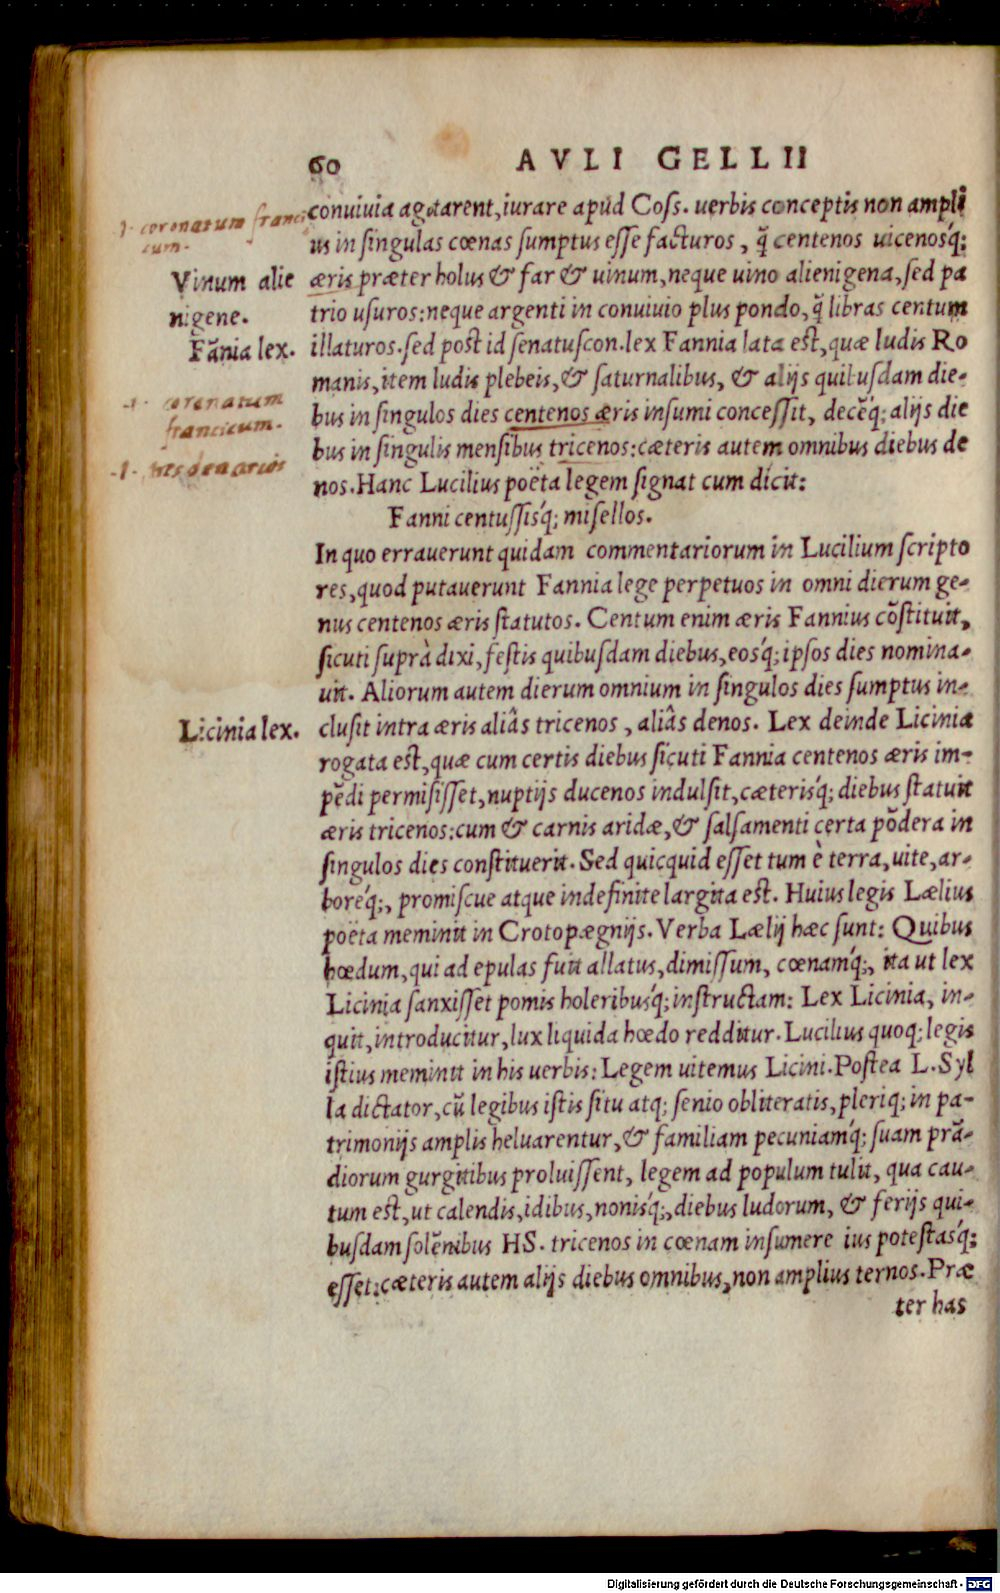 60 AVLI GELLII
conuiuia agitarent, iurare apud Coss. uerbis conceptis non ampli
us in singulas cœnas sumptus esse facturos, q̃ centenos uicenosq́;
æris præter holus & far & uinum, neque uino alienigena, sed pa
trio usuros: neque argenti in conuiuio plus pondo, q̃ libras centum
illaturos. sed post id senatuscon. lex Fannia lata est, quæ ludis Ro
manis, item ludis plebeis, & saturnalibus, & alijs quibusdam die-
bus in singulos dies centenos æris insumi concessit, decẽq́; alijs die
bus in singulis mensibus tricenos: cæteris autem omnibus diebus de
nos. Hanc Lucilius poëta legem signat cum dicit:
Fanni centussisq́; misellos.
In quo errauerunt quidam commentariorum in Lucilium scripto
res, quod putauerunt Fannia lege perpetuos in omni dierum ge-
nus centenos æris statutos. Centum enim æris Fannius cõstituit,
sicuti suprà dixi, festis quibusdam diebus, eosq́; ipsos dies nomina-
uit. Aliorum autem dierum omnium in singulos dies sumptus in-
clusit intra æris aliâs tricenos, aliâs denos. Lex deinde Licinia
rogata est, quæ cum certis diebus sicuti Fannia centenos æris im-
pẽdi permisisset, nuptijs ducenos indulsit, cæterisq́; diebus statuit
æris tricenos: cum & carnis aridæ, & salsamenti certa põdera in
singulos dies constituerit. Sed quicquid esset tum è terra, uite, ar-
boreq́;, promiscue atque indefinite largita est. Huius legis Lælius
poëta meminit in Crotopægnijs. Verba Lælij hæc sunt: Quibus
hœdum, qui ad epulas fuit allatus, dimissum, cœnamq́;, ita ut lex
Licinia sanxisset pomis holeribusq́; instructam: Lex Licinia, in-
quit, introducitur, lux liquida hœdo redditur. Lucilius quoq; legis
istius meminit in his uerbis: Legem uitemus Licini. Postea L. Syl
la dictator, cũ legibus istis situ atq; senio obliteratis, pleriq; in pa-
trimonijs amplis heluarentur, & familiam pecuniamq́; suam prã-
diorum gurgitibus proluissent, legem ad populum tulit, qua cau-
tum est, ut calendis, idibus, nonisq́;, diebus ludorum, & ferijs qui-
busdam solẽnibus HS. tricenos in cœnam insumere ius potestasq́;
esset: cæteris autem alijs diebus omnibus, non amplius ternos. Præ
ter has
.i. coronatum franci
cum.
Vinum alie
nigene.
Fãnia lex.
.i. coronatum
francicum.
.i. tres denarios
Licinia lex.
Digitalisierung gefördert durch die Deutsche Forschungsgemeinschaft - DFG